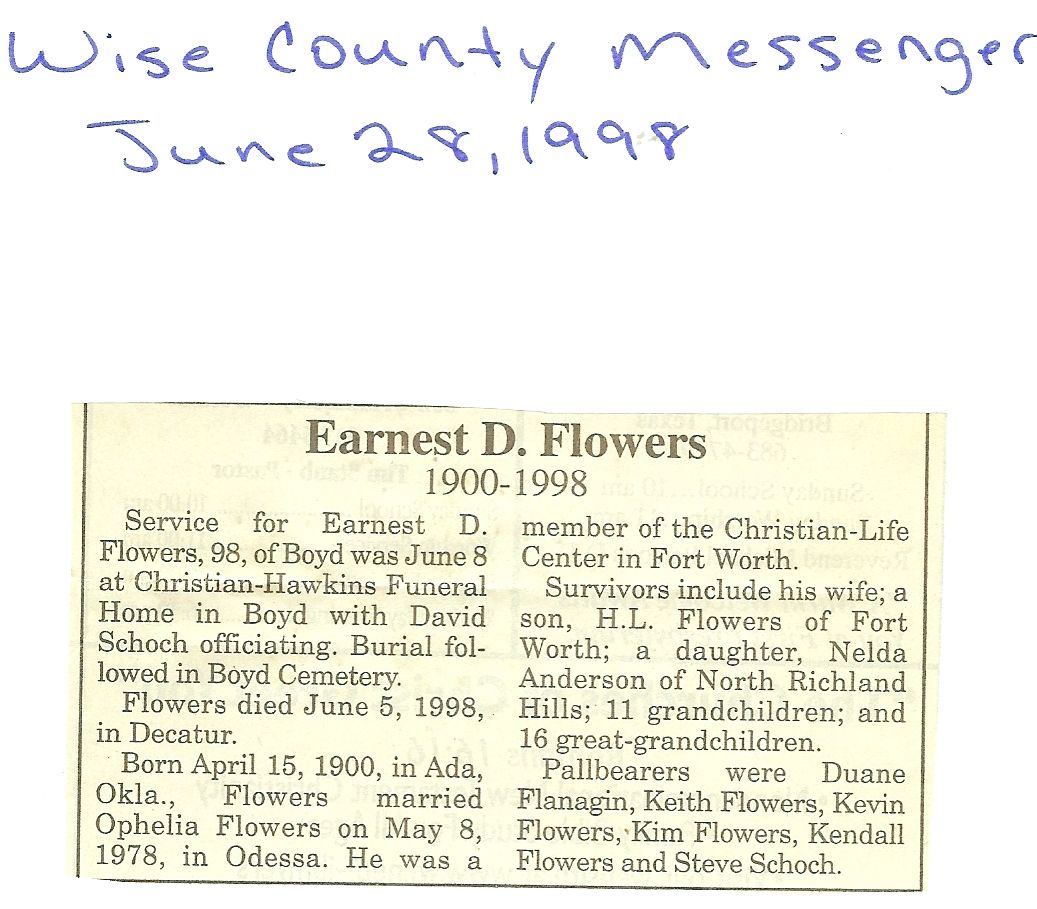 Wise County Messenger
June 28, 1998
Earnest D. Flowers
1900-1998
Service for Earnest D.
Flowers, 98, of Boyd was June 8
at Christian-Hawkins Funeral
Home in Boyd with David
Schoch officiating. Burial fol-
lowed in Boyd Cemetery.
Flowers died June 5, 1998,
in Decatur.
Born April 15, 1900, in Ada,
Okla., Flowers married
Ophelia Flowers on May 8,
1978, in Odessa. He was a
member of the Christian-Life
Center in Fort Worth.
Survivors include his wife; a
son, H.L. Flowers of Fort
Worth; a daughter, Nelda
Anderson of North Richland
Hills; 11 grandchildren; and
16 great-grandchildren.
Pallbearers were Duane
Flanagin, Keith Flowers, Kevin
Flowers, Kim Flowers, Kendall
Flowers and Steve Schoch.